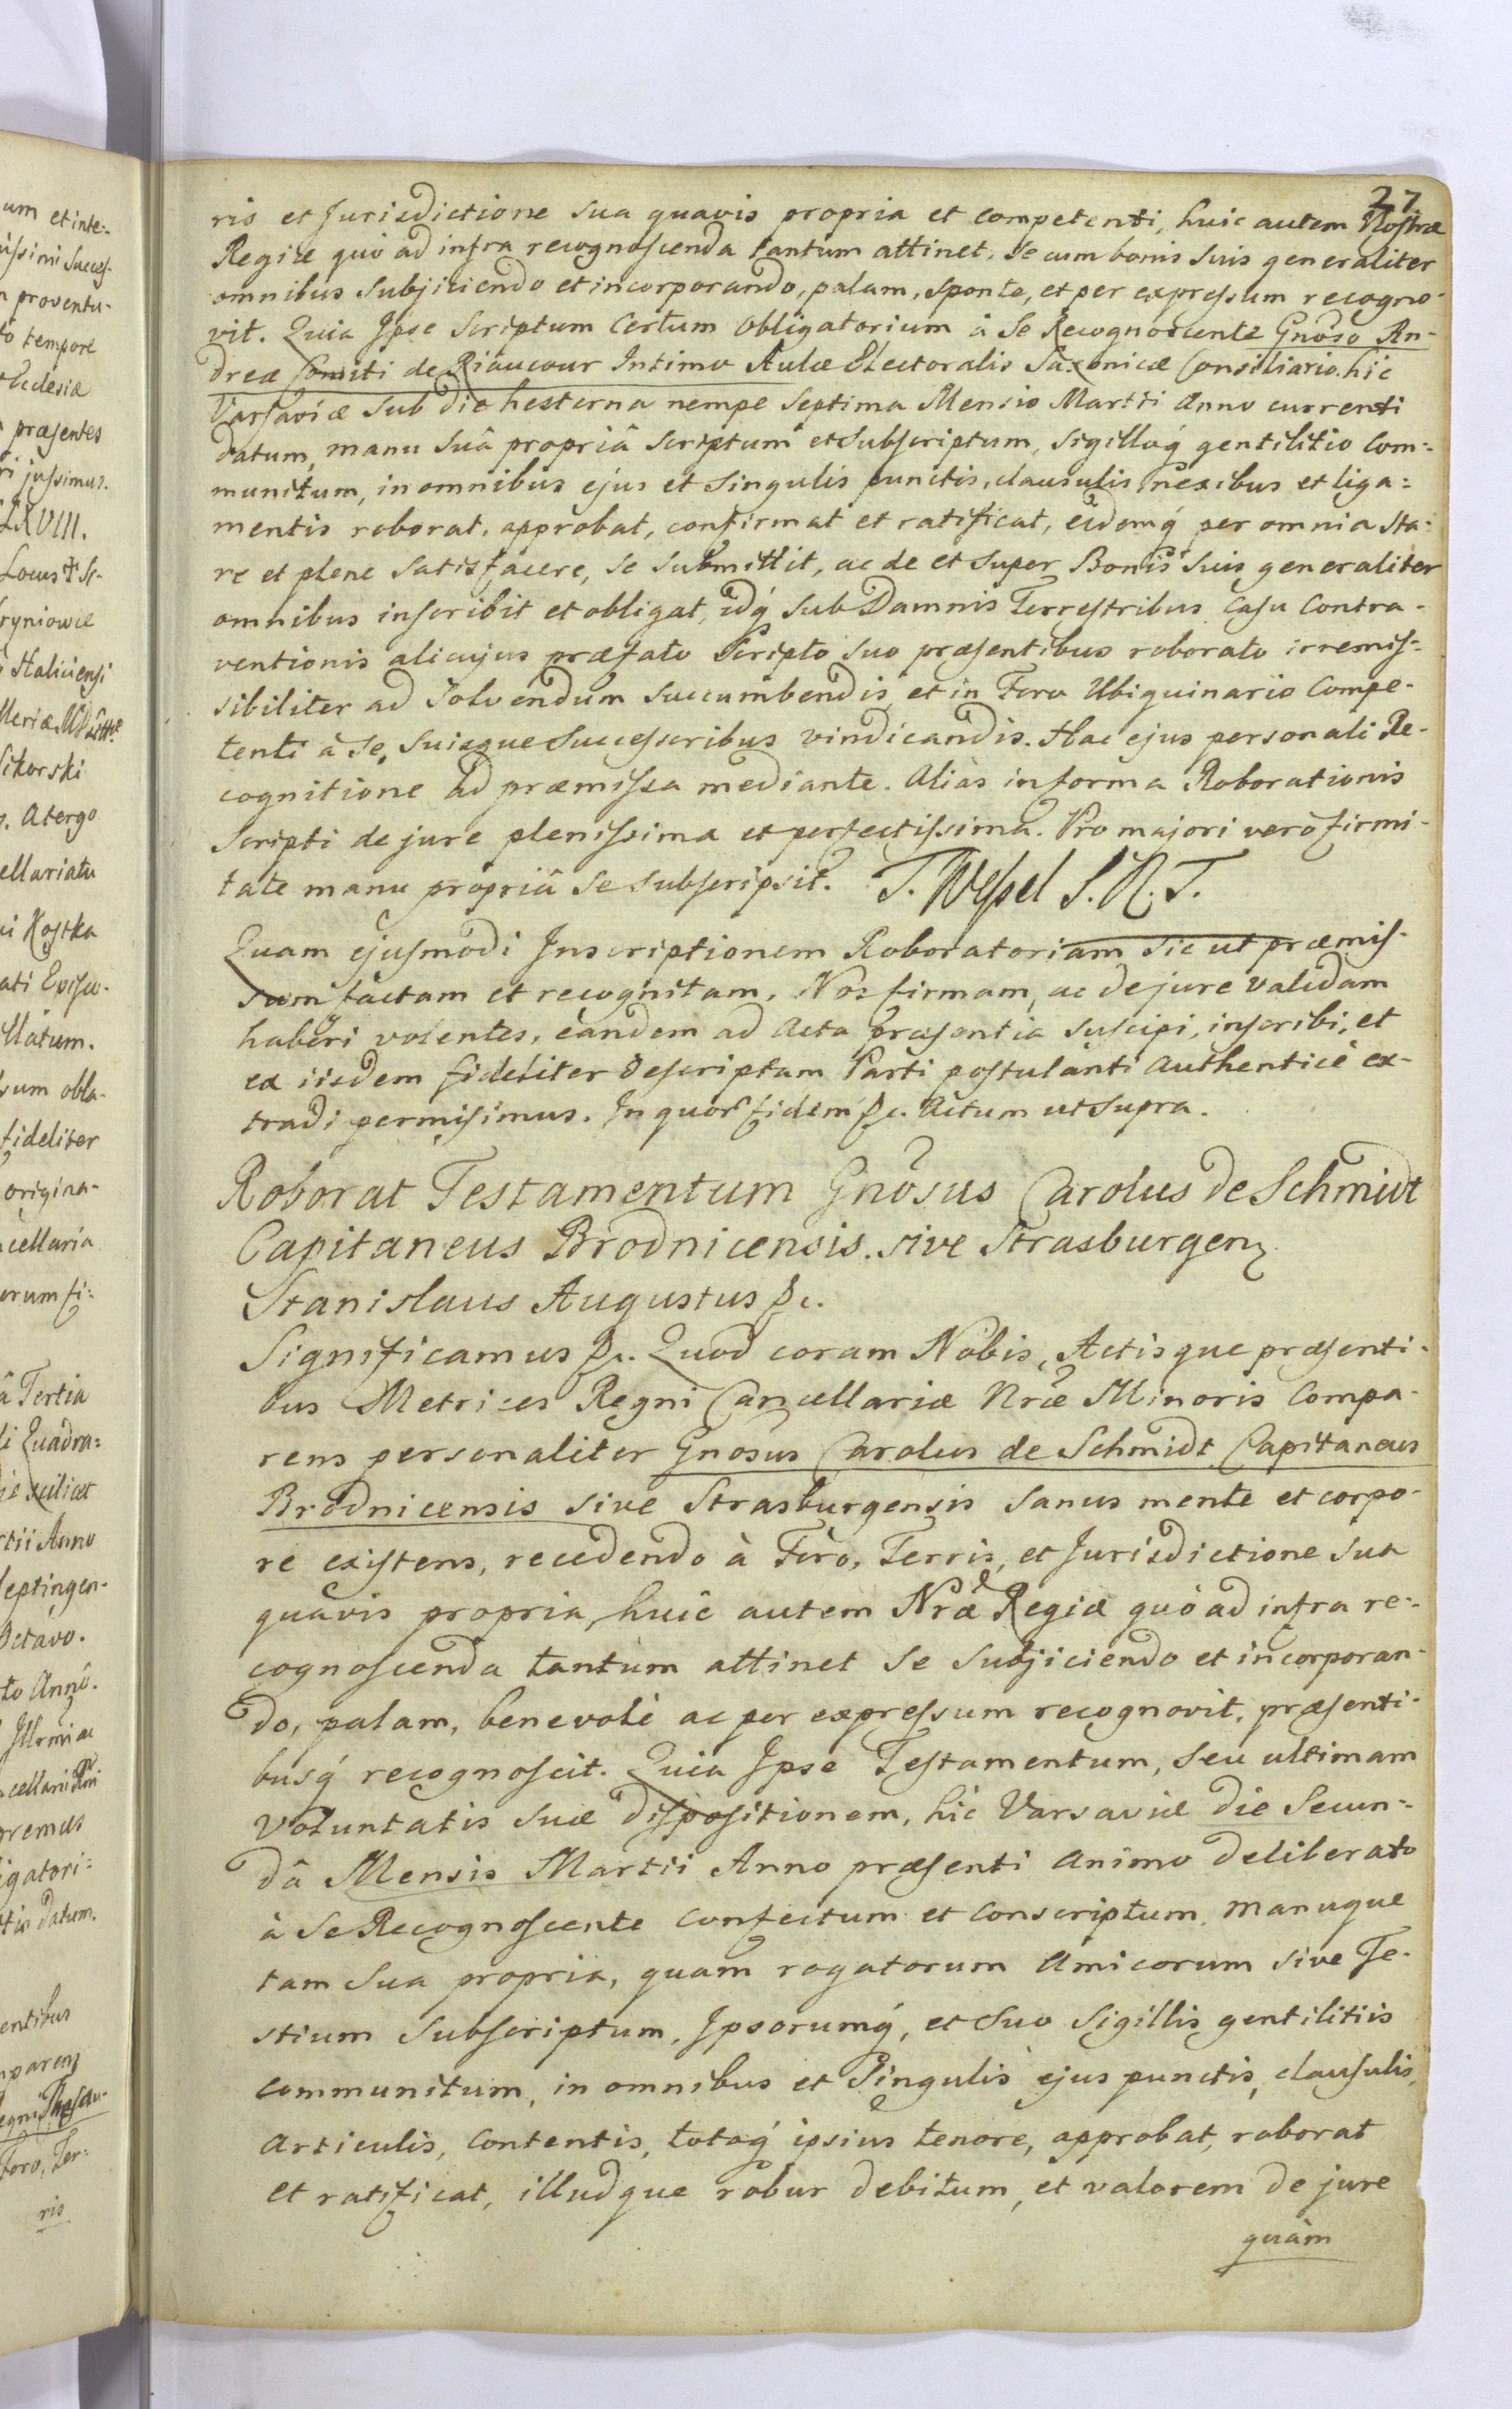 27.
ris et Jurisdictione sua quavis propria et competenti, huic autem Nostræ
Regiæ quò ad infra recognoscenda tantum attinet, se cum bonis suis generaliter
omnibus subjiciendo et incorporando, palam, sponte, et per expressum recogno-
vit. Quia Ipse Scriptum Certum Obligatorium à Se Recognoscente Gnoso An-
dreæ Comiti de Riaucour Intimo Aulæ Electoralis Saxonicæ Consiliario hic
Varsaviæ sub die hesterna nempe Septima Mensis Martii Anno currenti
datum, manu suâ propriâ scriptum et subscriptum, sigilloq́ gentilitio com-
munitum, in omnibus ejus et singulis punctis, clausulis nexibus et liga-
mentis roborat, approbat, confirmat et ratificat, eidemq́ per omnia sta-
re et plene satisfacere, se submittit, ac de et super Bonis suis generaliter
omnibus inscribit et obligat, idq́ sub Damnis Terrestribus casu contra-
ventionis alicujus præfato Scripto suo præsentibus roborato irremis-
sibiliter ad solvendum succumbendis, et in Foro Ubiquinario Compe-
tenti à se, suisque Successoribus vindicandis. Hac ejus personali Re-
cognitione ad præmissa mediante. Aliàs in forma Roborationis
Scripti de jure plenissima et perfectissima. Pro majori verò firmi-
tate manu propriâ se subscripsit. T. Wessel S. R. T.
Quam ejusmodi Inscriptionem Roboratoriam sic ut præmis-
sum factam et recognitam, Nos firmam, ac de jure validam
haberi volentes, eandem ad Acta præsentia suscipi, inscribi, et
ex iisdem fideliter descriptam Parti postulanti authenticè ex-
tradi permisimus. In quor̃ fidem &c. Actum ut supra.
Roborat Testamentum Gnõsus Carolus de Schmidt
Capitaneus Brodnicensis. sive Strasburgen
Stanislaus Augustus &c.
Significamus &c. Quod coram Nobis, Actisque præsenti-
bus Metrices Regni Cancellariæ Nræ Minoris Compa-
rens personaliter Gnosus Carolus de Schmidt Capitaneus
Brodnicensis sive Strasburgensis sanus mente et corpo-
re existens, recedendo à Foro, Terris, et Jurisdictione sua
quavis propria, huic autem Nræ Regiæ quò ad infra re-
cognoscenda tantum attinet se subjiciendo et incorporan-
do, palam, benevolè ac per expressum recognovit, præsenti-
busq́ recognoscit. Quia Ipse Testamentum, seu ultimam
voluntatis suæ dispositionem, hic Varsaviæ die Secun-
dâ Mensis Martii Anno præsenti animo deliberato
à Se Recognoscente confectum et conscriptum, manuque
tam sua propria, quam rogatorum Amicorum sive Te-
stium subscriptum, Ipsorumq́, et suo Sigillis gentilitiis
communitum, in omnibus et singulis ejus punctis, clausulis,
Articulis, Contentis, totoq́ ipsius tenore, approbat, roborat
et ratificat, illudque robur debitum, et valorem de jure
quàm